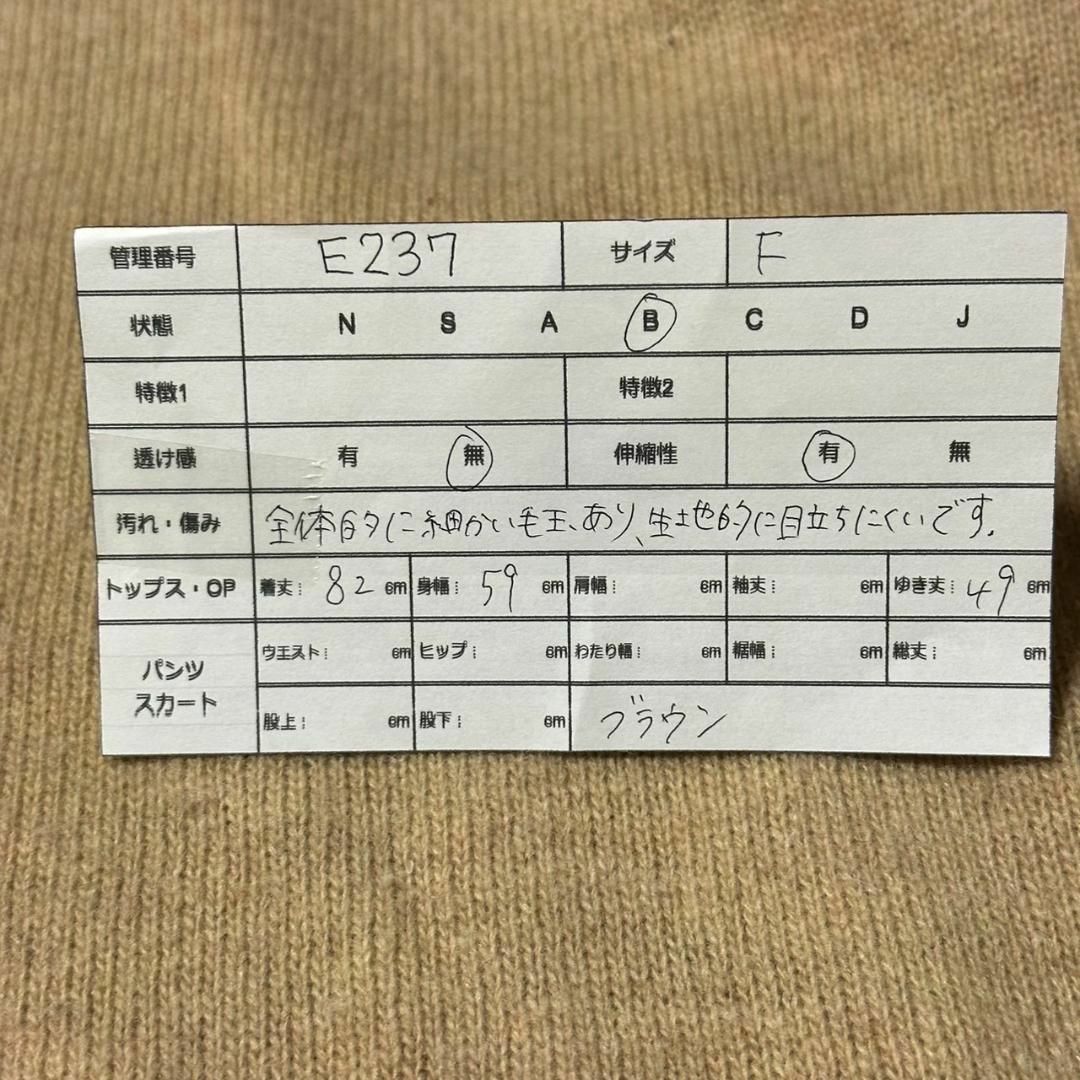 管理番号 E237 サイズ F
状態 N S A B C D J
特徴1 特徴2
透け感 有 無 伸縮性 有 無
汚れ・傷み 全体的に細かい毛玉、あり、生地的に目立ちにくいです。
トップス・OP 着丈: 82 cm 身幅: 59 cm 肩幅: cm 袖丈: cm ゆき丈: 49 cm
パンツ スカート
ウエスト: cm ヒップ: cm わたり幅: cm 裾幅: cm 総丈: cm
股上: cm 股下: cm ブラウン